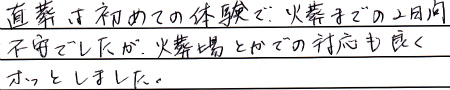 直葬は初めての体験で、火葬までの2日間
不安でしたが、火葬場とかでの対応も良く
ホッとしました。